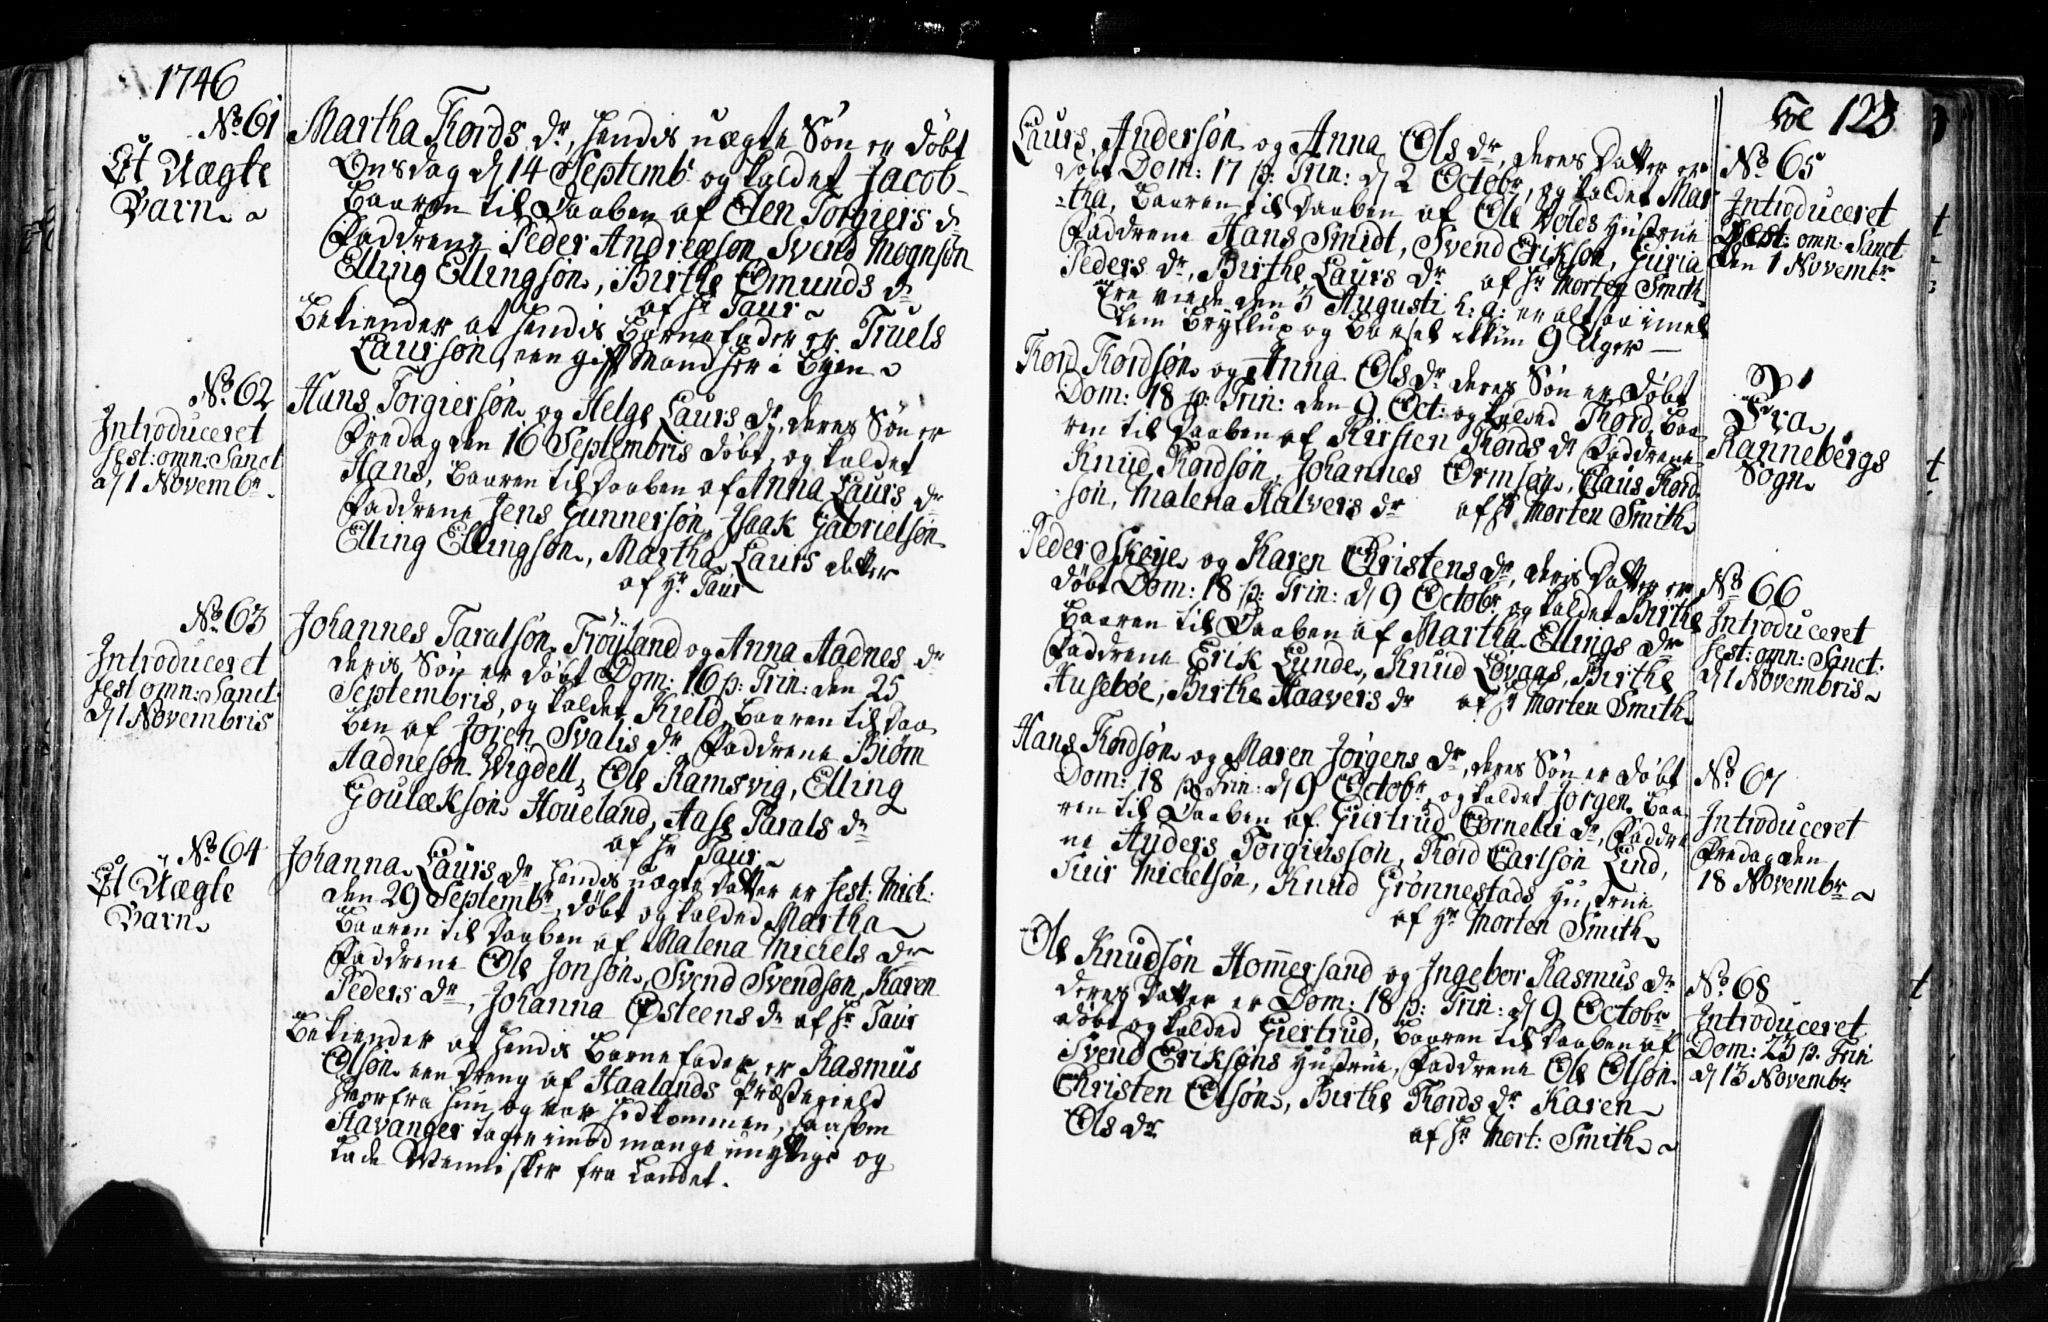 1746
No. 61
Et Uægte
Barn.
Martha Tords dr, hendis uægte Søn er døbt
Onsdag d 14 Septembr og kaldet Jacob
Baaren til Daaben af Elen Torgiers dr
Faddrene Peder Andreæsøn, Svend Mognsøn
Elling Ellingsøn, Birthe Omunds dr
af Hr Taur
Bekiender at hendis Barnefader er Truels
Laursøn, een gift Mand her i Byen
No. 62
Introduceret
fest: omn: Sanct
d 1 Novembr.
Hans Torgiersøn og Helge Laurs dr, deres Søn er
Fredag den 16 Septembris døbt, og kaldet
Hans, Baaren til Daaben af Anna Laurs dr
Faddrene Jens Gunnersøn, Isaak Gabrielsøn
Elling Ellingsøn, Martha Laurs datter
af Hr Taur
No. 63
Introduceret
fest omn: Sanct:
d 1 Novembris
Johannes Taralsøn Trøyland og Anna Aadnes dr
deris Søn er døbt Dom: 16 p: Trin: den 25
Septembris, og kaldet Kield, Baaren til Daa
ben af Joren Svalis dr Faddrene Biørn
Aadnesøn Wigdell, Ole Ramsvig, Elling
Goulæksøn Houeland, Aase Tarals dr
af Hr Taur
No. 64
Et Uægte
Barn
Johanna Laurs dr hendis uægte Datter er fest: Mich:
den 29 Septembr, døbt og kalded Martha
Baaren til Daaben af Malena Michels dr
Faddrene Ole Jonsøn, Svend Svendsøn, Karen
Peders dr, Johanna Østeens dr af Hr Taur
Bekiender at hendis Barnefader, er Rasmus
Olsøn een dreng af Haalands Præstegield
hvorfra hun og var hidkommen, saasom
Stavanger tager imod mange unyttige og
lade Mennisker fra Landet.
Fol 123
Laurs Andersøn og Anna Ols dr, deres Datter er
døbt Dom: 17 p: Trin: d 2 Octobr, og kaldet Mar
tha, Baaren til Daaben af Ole Hustrue
Faddrene Hans Smidt, Svend Eriksøn, Guria
Peders dr, Birthe Laurs dr af Hr Morten Smith
Ere viede den 5 Augusti h: a: er altsaa imel
lem Bryllup og Barsel ikkun 9 Uger
No. 65
Introduceret
Fest: omn: Sanct
den 1 Novembr
Tord Tordsøn og Anna Ols dr deres Søn er døbt
Dom: 18 p: Trin: den 9 Oct: og kaldet Tord, Baa
ren til Daaben af Kirsten Tords dr Faddrene
Knud Tordsøn, Johannes Ormsøn, Claus Tord
søn, Malena Halvers dr af Hr Morten Smith
Fra
Rannebergs
Sogn
Peder Skeye og Karen Christens dr, deris Datter er
døbt Dom: 18 p: Trin: d 9 Octobr og kaldet Birthe
Baaren til Daaben af Martha Ellings dr
Faddrene Erik Lunde, Knud Lovaas, Birthe
Husebøe, Birthe Haavers dr af Hr Morten Smith
No. 66
Introduceret
fest: omn: Sanct:
d 1 Novembris
Hans Tordsøn og Maren Jørgens dr, deres Søn er døbt
Dom: 18 p: Trin: d 9 Octobr, og kaldet Jørgen, Baa
ren til Daaben af Giertrud Cornelii dr, Faddre
ne Anders Torgiussøn, Tord Carlsøn Lind,
Siur Michelsøn, Knud Grønnestads Hustrue
af Hr Morten Smith
No. 67
Introduceret
Fredag den
18 Novembr
Ole Knudsøn Hommersand og Ingebor Rasmus dr
deres Datter er Dom: 18 p: Trin: d 9 Octobr
døbt og kaldet Giertrud, Baaren til Daaben af
Svend Eriksøns Hustrue, Faddrene Ole Olsøn
Christen Olsøn, Birthe Tords dr Karen
Ols dr af Hr Mort: Smith
No. 68
Introduceret
Dom: 23 p. Trin
d 13 Novembr